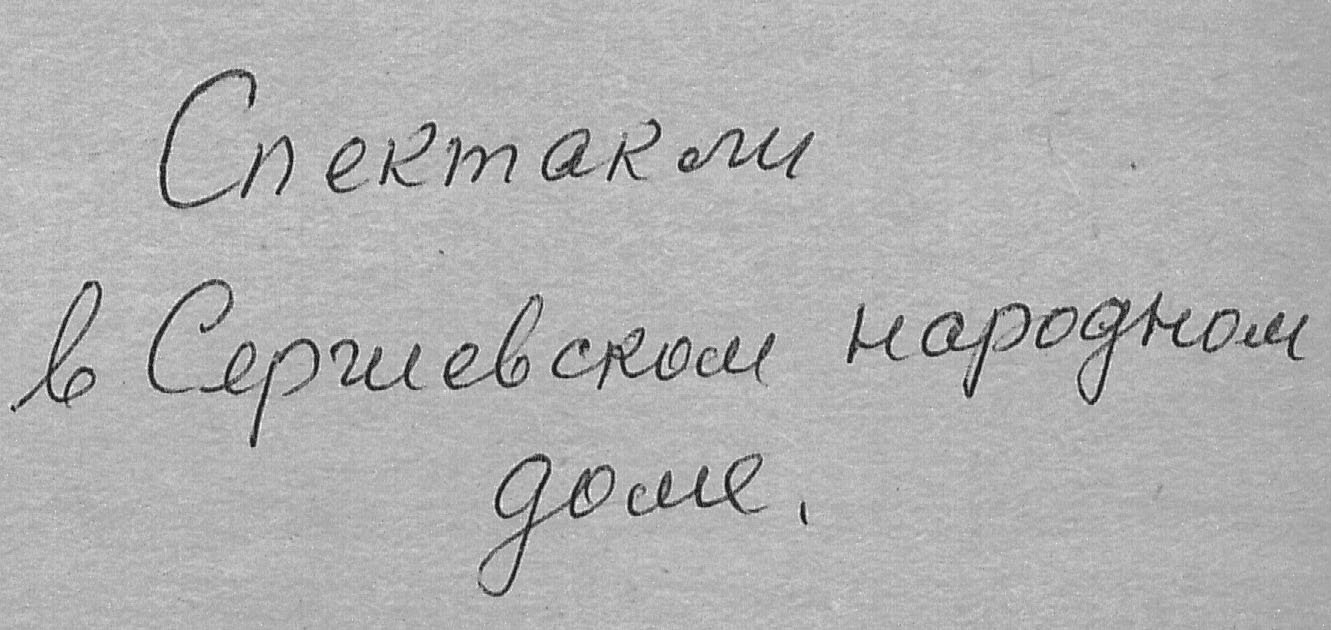 Спектакли
в Сергиевском народном
доме.